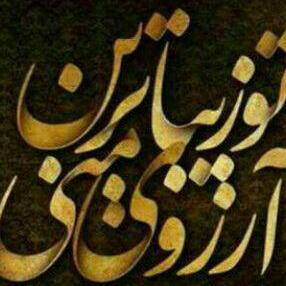 تو زیباترین
آرزوی منی